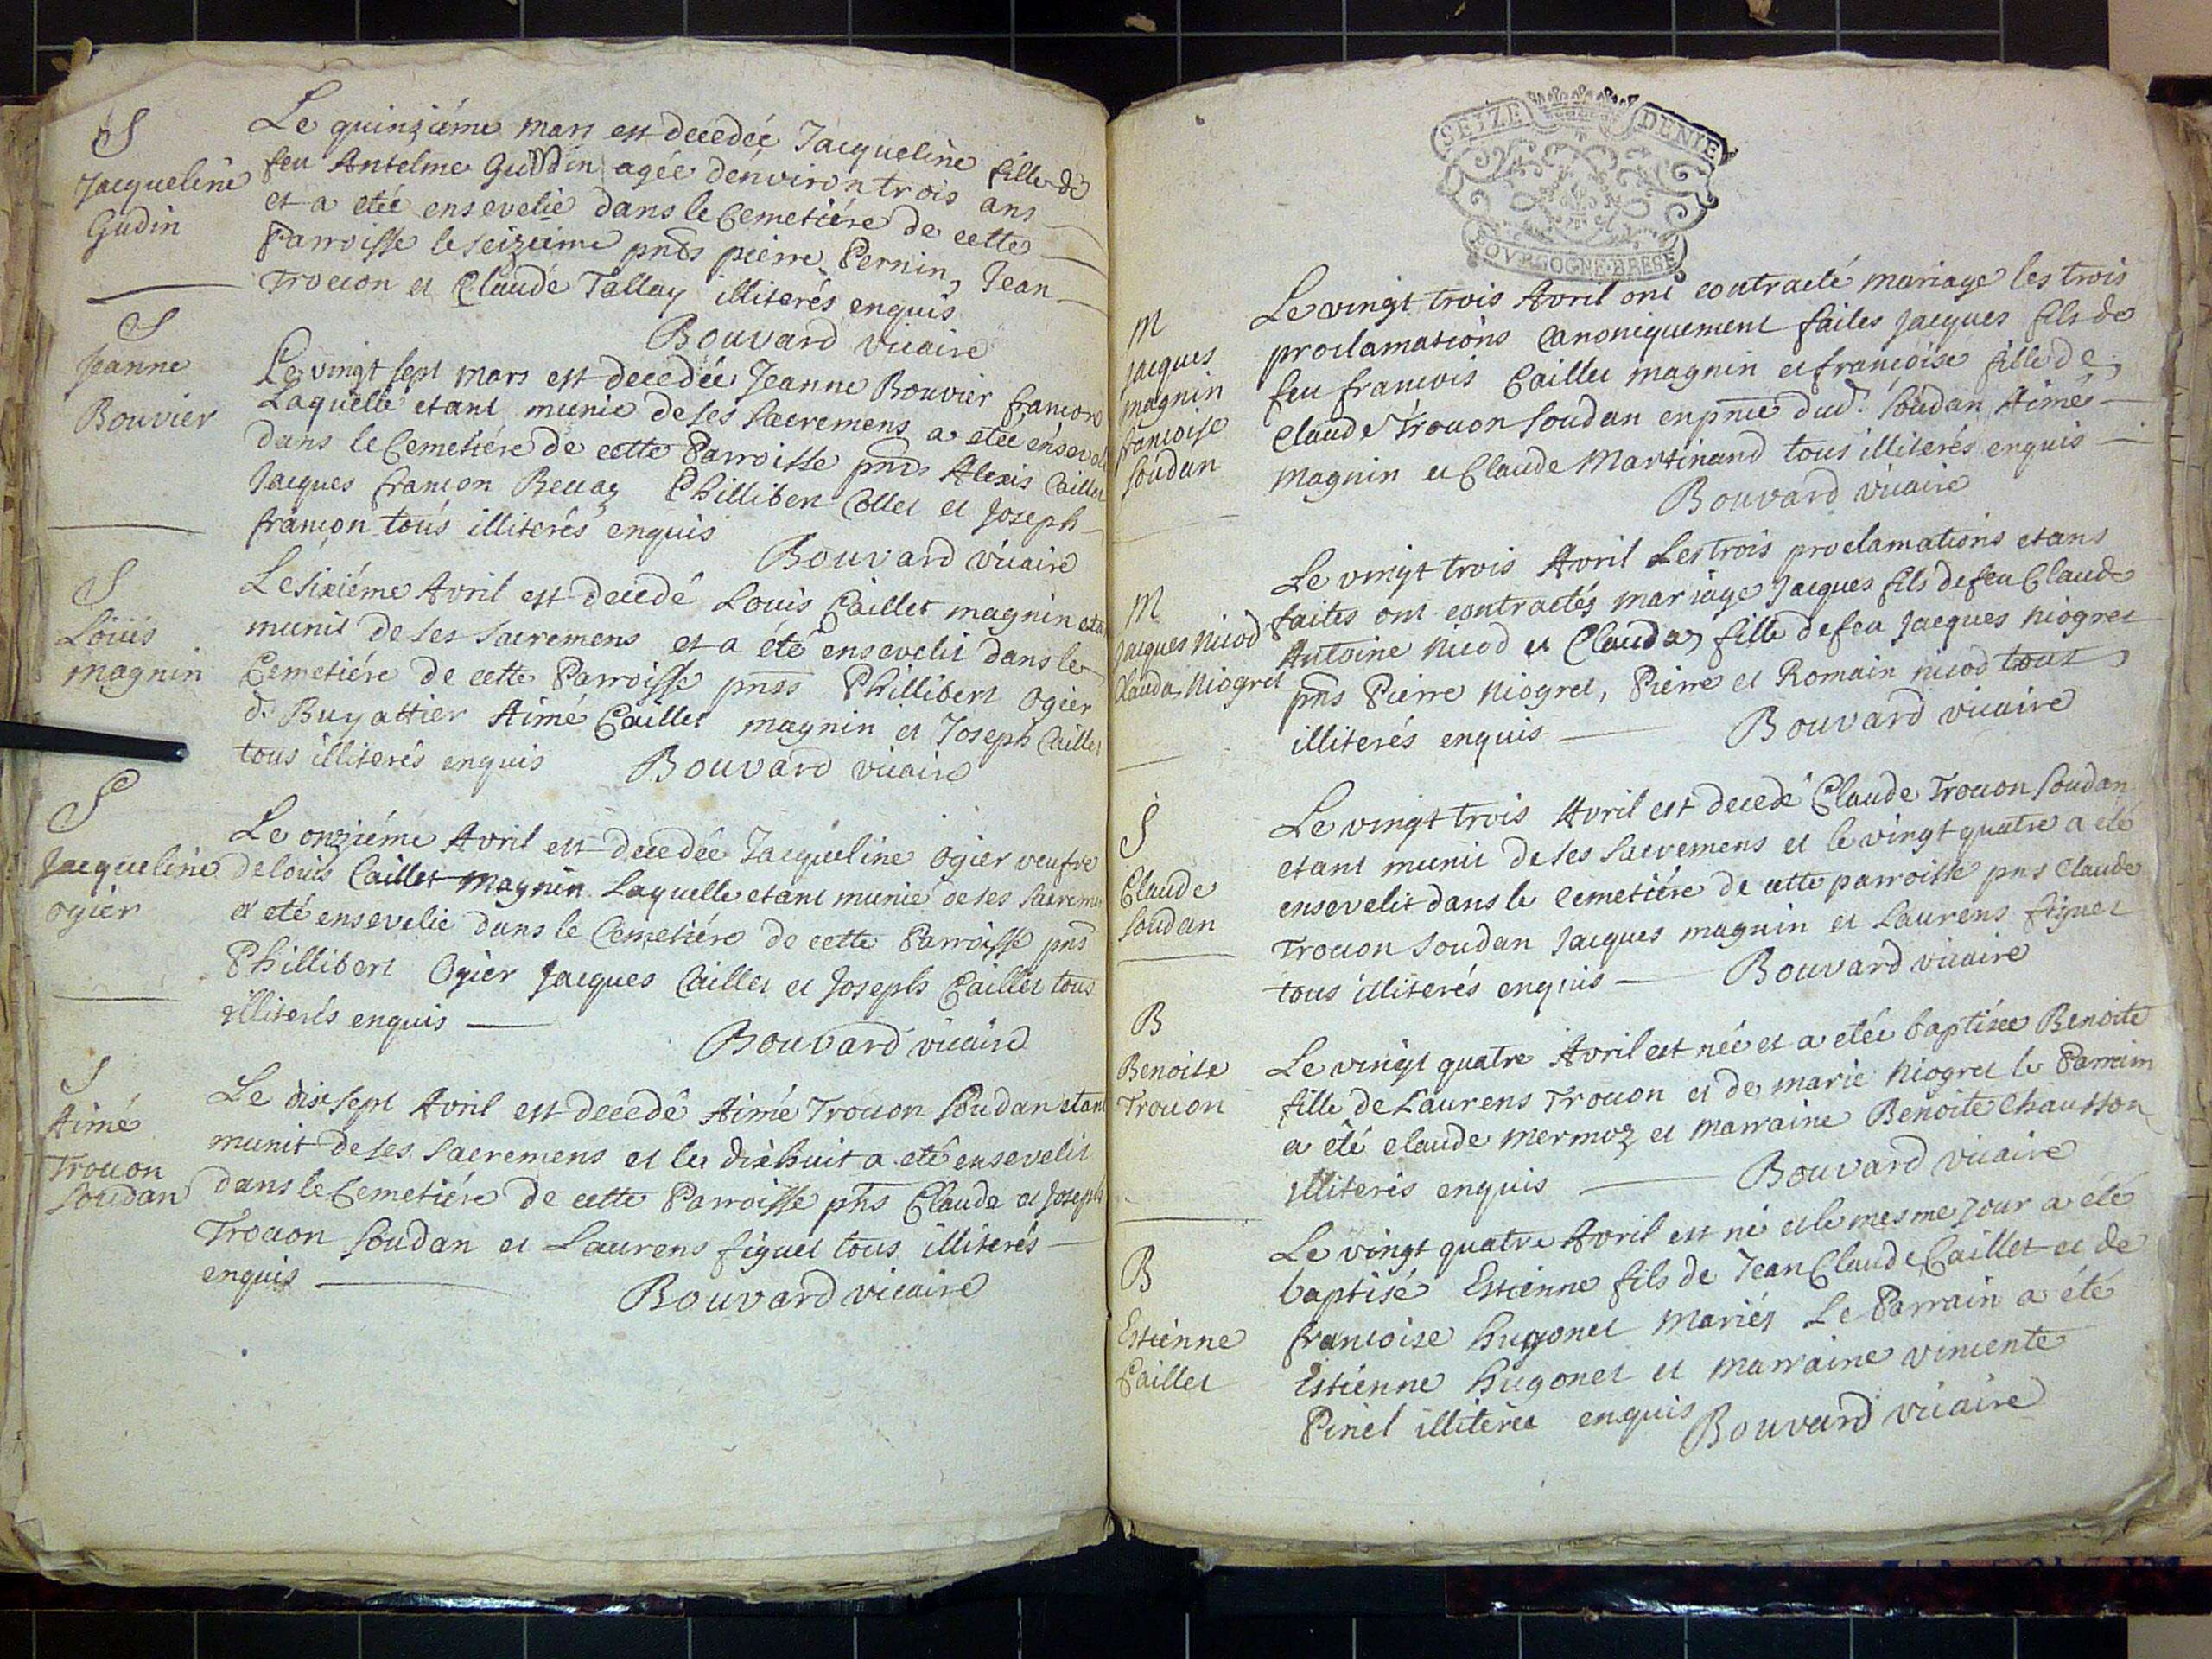 S
Jacqueline
Gudin
Le quinziéme mars est decedée Jacqueline fille de
feu Antelme Gudin agée d'environ trois ans
et a etée ensevelie dans le Cemetiére de cette
Parroisse le seizieme pnts pierre Pernin, Jean
Troccon et Claude Tallay illiterés enquis
Bouvard vicaire
S
Jeanne
Bouvier
Le vingt sept mars est decedée Jeanne Bouvier francon
Laquelle etant munie de ses sacremens a etée ensevel
dans le Cemetiére de cette Parroisse pnts Alexis Caillet
Jacques francon Beccaz Phillibert Collet et Joseph
francon tous illiterés enquis
Bouvard vicaire
S
Loüis
magnin
Le sixiéme Avril est decedé Louis Caillet magnin eta
munit de ses sacremens et a été ensevelit dans le
Cemetiére de cette Parroisse pnts Phillibert Ogier
d. Buyattier Aimé Caillet magnin et Joseph Caillet
tous illiterés enquis Bouvard vicaire
S
Jacqueline
ogier
Le onziéme Avril est decedée Jacqueline ogier veufve
de louis Caillet magnin Laquelle etant munie de ses sacrem
a eté ensevelie dans le Cemetiére de cette Parroisse pnts
Phillibert Ogier Jacques Caillet et Joseph Caillet tous
illiterés enquis
Bouvard vicaire
S
Aimé
Troccon
Soudan
Le dixsept Avril est decedé Aimé Troccon Soudan etant
munit de ses sacremens et le dixhuit a eté ensevelit
dans le Cemetiére de cette Parroisse pnts Claude et Joseph
Troccon Soudan et Laurens figuet tous illiterés
enquis
Bouvard vicaire
SEIZE DENIE
BOVRGOGNE·BRESE
M
Jacques
magnin
francoise
Soudan
Le vingt trois Avril ont contracté mariage les trois
proclamations Canoniquement faites Jacques fils de
feu francois Caillet magnin et francoise fille de
Claude Troccon Soudan en pnce dud. Soudan Aimé
magnin et Claude Martinand tous illiterés enquis
Bouvard vicaire
M
Jacques Nicod
Clauda Niogret
Le vingt trois Avril Les trois proclamations etans
faites ont contractés mariage Jacques fils de feu Claude
Antoine Nicod et Clauda fille de feu Jacques Niogret
pnts Pierre Niogret, Pierre et Romain Nicod tous
illiterés enquis Bouvard vicaire
S
Claude
Soudan
Le vingt trois Avril est decedé Claude Troccon Soudan
etant munit de ses sacremens et le vingt quatre a été
ensevelit dans le cemetiére de cette parroisse pnts Claude
Troccon Soudan Jacques magnin et Laurens figuet
tous illiterés enquis Bouvard vicaire
B
Benoite
Troccon
Le vingt quatre Avril est née et a etée baptisée Benoite
fille de Laurens Troccon et de marie Niogret le Parrain
a été claude mermoz et marraine Benoite Chausson
illiterés enquis Bouvard vicaire
B
Estienne
Caillet
Le vingt quatre Avril est né et le mesme jour a été
baptisé Estienne fils de Jean Claude Caillet et de
francoise hugonet mariés Le Parrain a été
Estienne hugonet et marraine vincente
Pinel illiterée enquis Bouvard vicaire